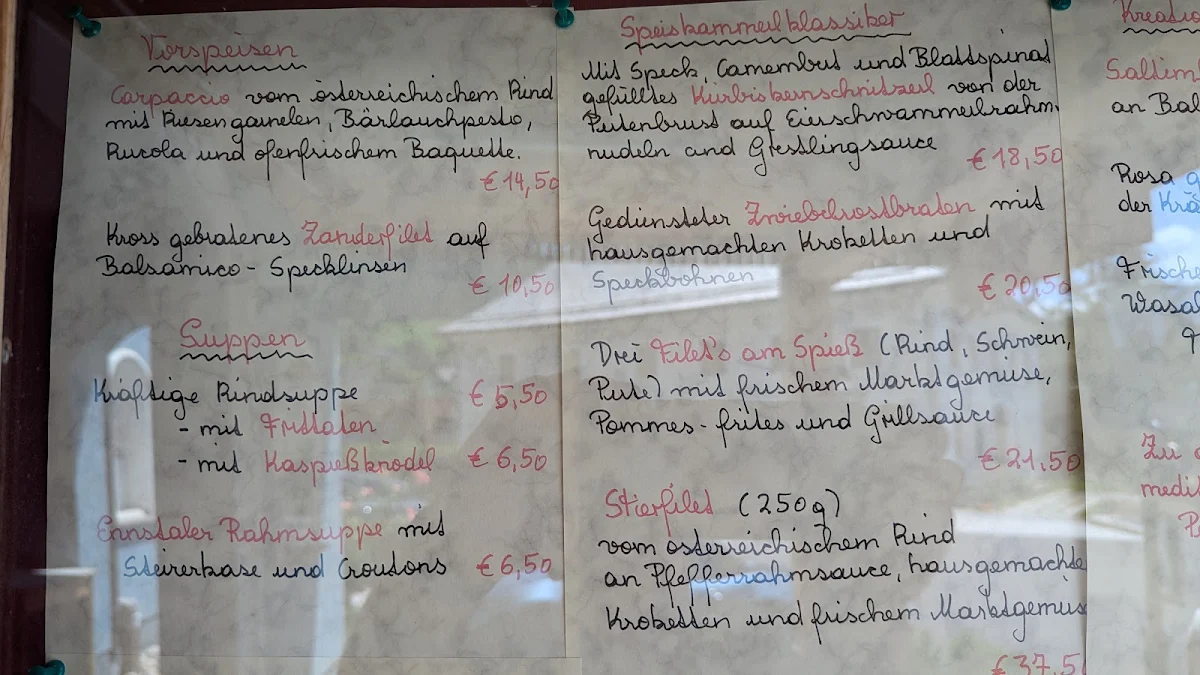 Vorspeisen
Carpaccio vom österreichischem Rind
mit Riesengarnelen, Bärlauchpesto,
Rucola und ofenfrischem Baguette.
€ 14,50
Kross gebratenes Zanderfilet auf
Balsamico - Specklinsen
€ 10,50
Suppen
Kräftige Rindsuppe € 5,50
- mit Frittaten
- mit Kaspreßknödel € 6,50
Ennstaler Rahmsuppe mit
Steirerkase und Croutons € 6,50
Speiskammerlklassiker
Mit Speck, Camembert und Blattspinat
gefülltes Kürbiskernschnitzerl von der
Putenbrust auf Eierschwammerlrahm-
nudeln und Grestlingsauce € 18,50
Gedünsteter Zwiebelrostbraten mit
hausgemachten Kroketten und
Speckbohnen € 20,50
Drei Filet's am Spieß (Rind, Schwein,
Pute) mit frischem Marktgemüse,
Pommes-frites und Grillsauce
€ 21.50
Stierfilet (250g)
vom österreichischem Rind
an Pfefferrahmsauce, hausgemachte
Kroketten und frischem Marktgemüs
€ 37,50
Kreatio
Saltim
an Bal
Rosa g
der Krä
Frische
Wasa
Zu
medit